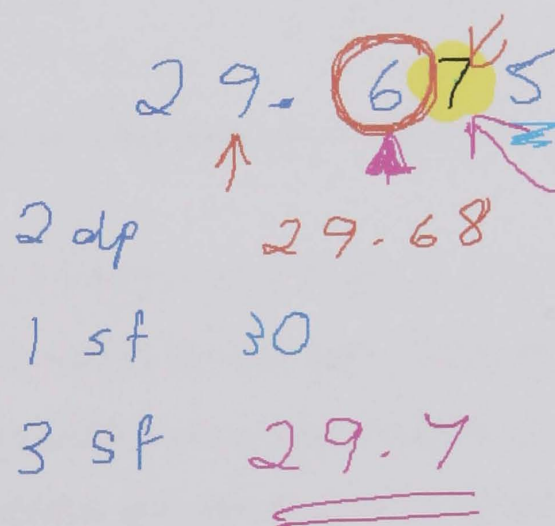 29.675
2 dp 29.68
1 sf 30
3 sf 29.7